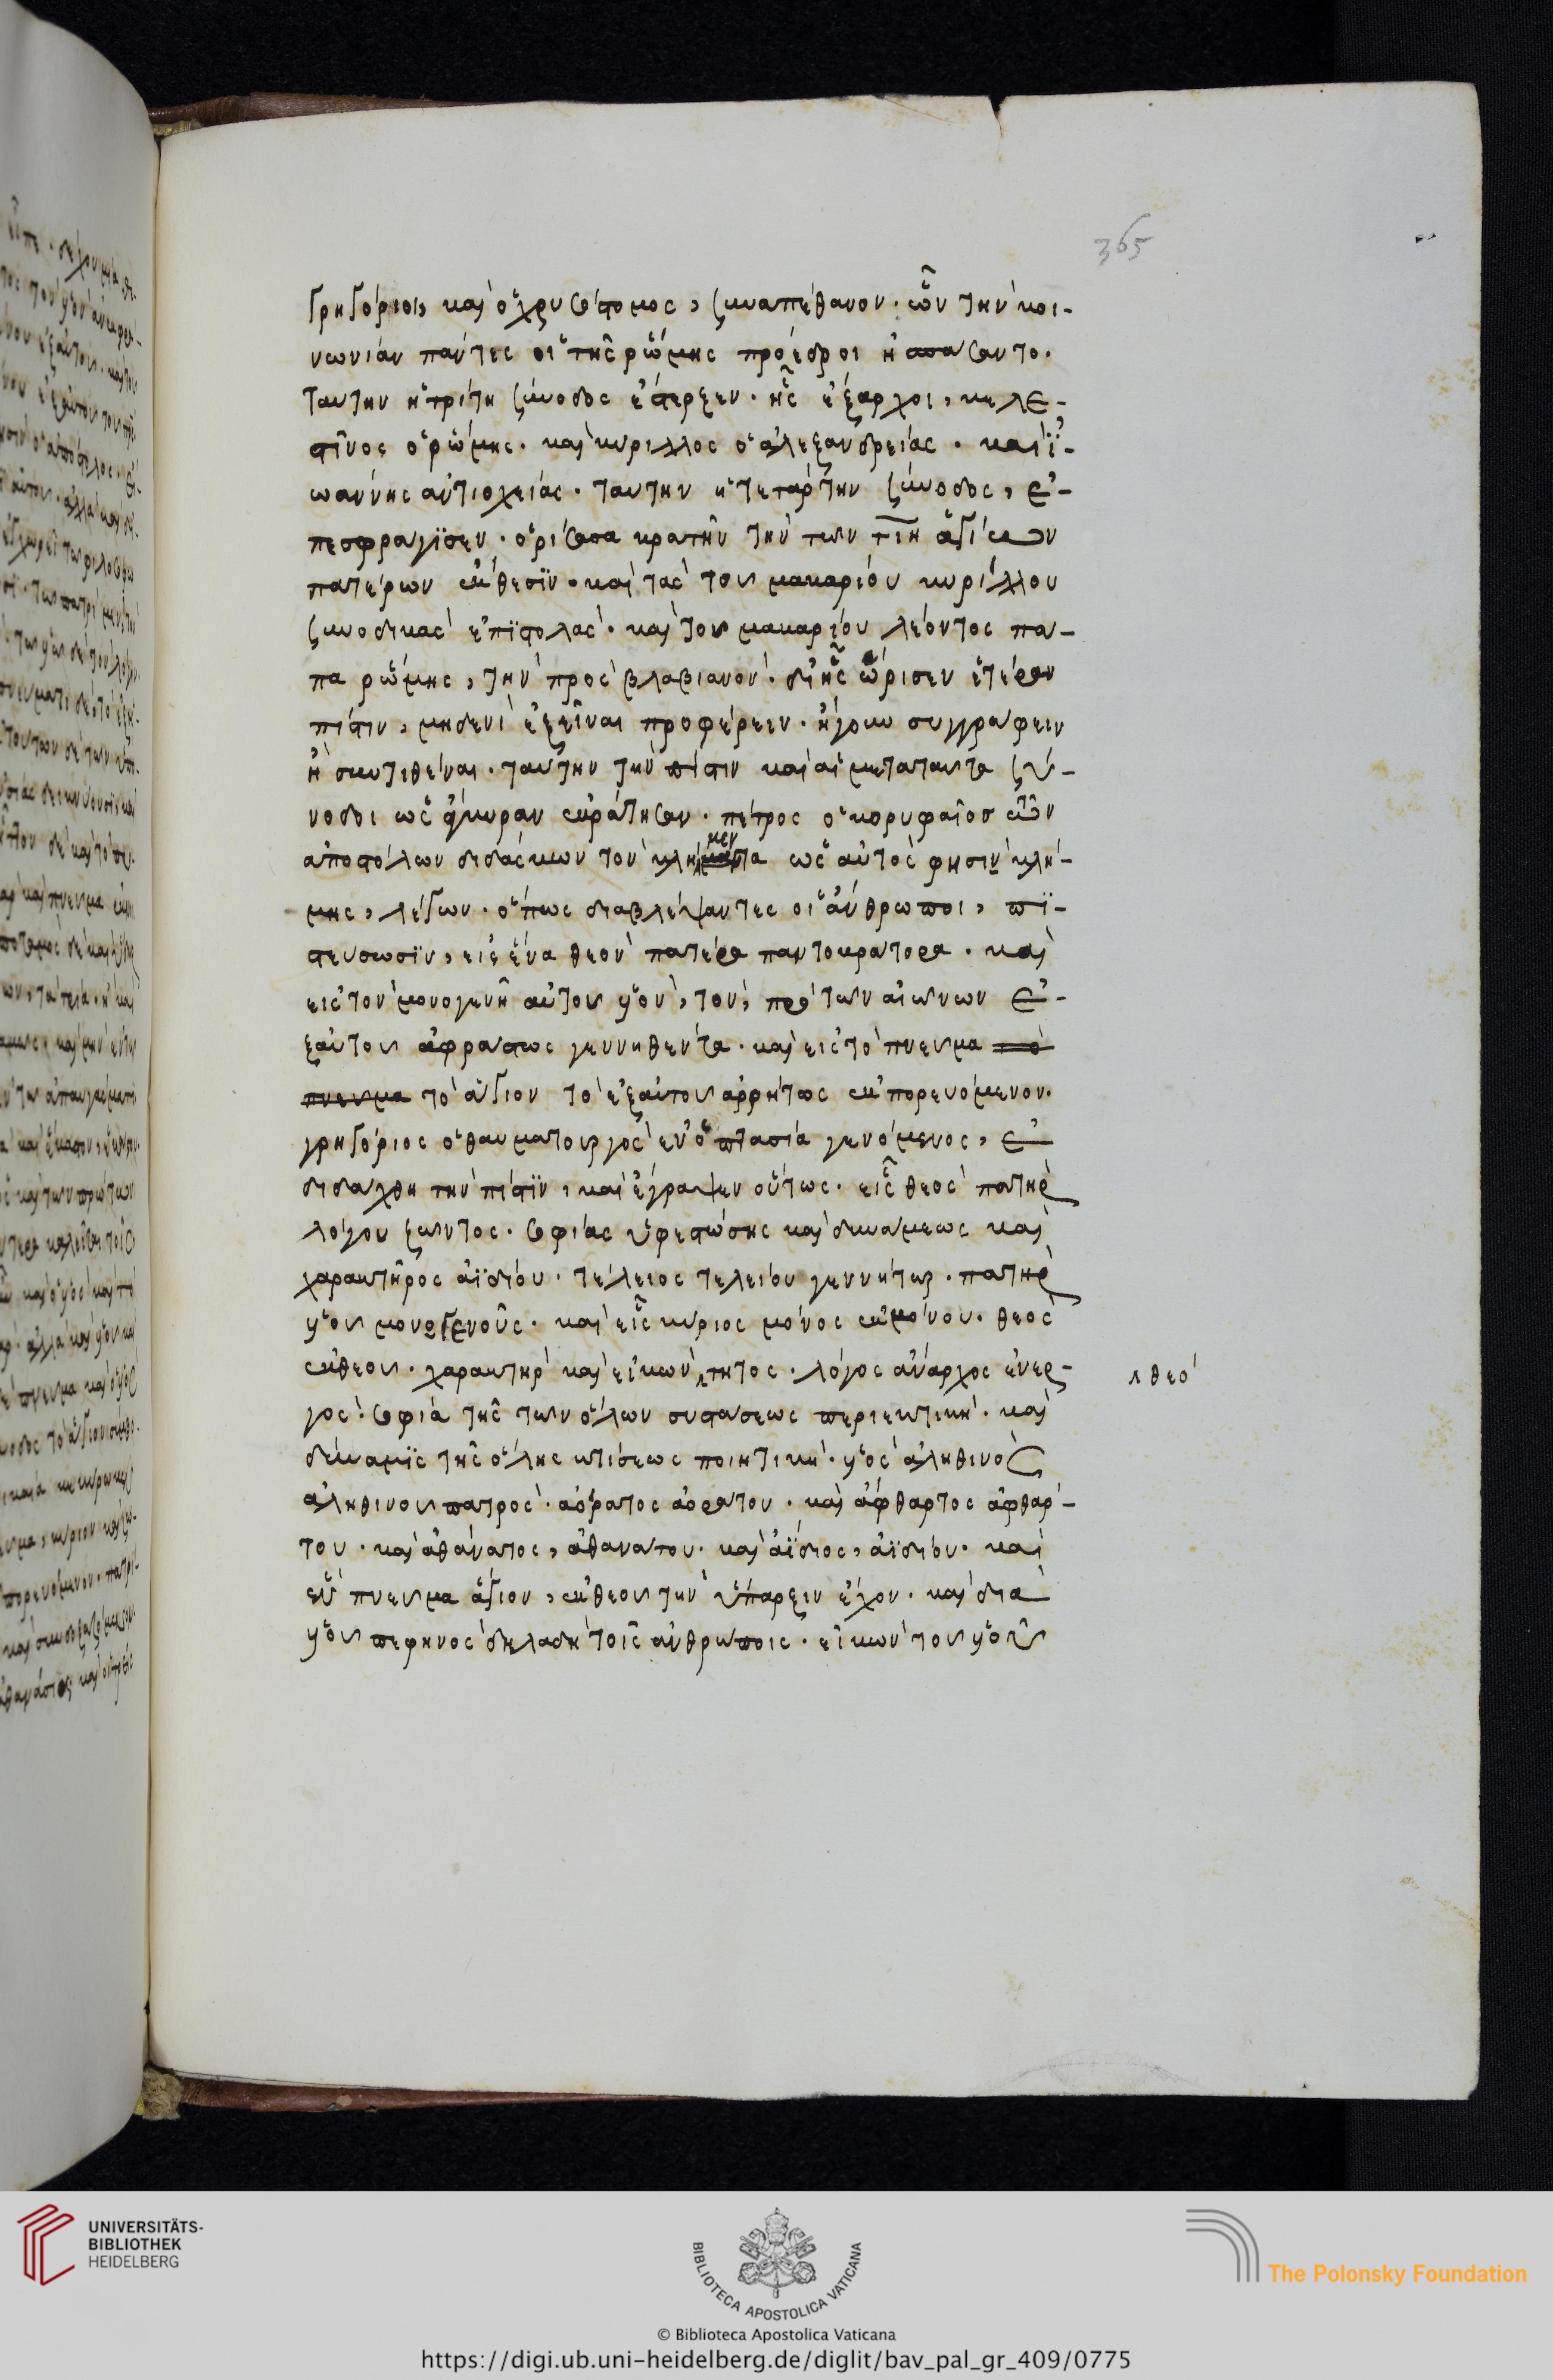 365
γρηγόριοι, καὶ ὁ χρυσόστομος, συναπέθανον. ὧν τὴν κοι-
νωνίαν πάντες οἱ τῆς ῥώμης πρόεδροι ἠσπάσαντο.
ταύτην ἡ τρίτη σύνοδος ἔστερξεν. ἧς ἔξαρχοι, κελε-
στῖνος ὁ ῥώμης. καὶ κύριλλος ὁ ἀλεξανδρείας. καὶ ἰ-
ωάννης ἀντιοχείας. ταύτην ἡ τετάρτην σύνοδος, ἐ-
πεσφράγισεν. ὁρίσασα κρατῆν τὴν τῶν τιη ἁγίων
πατέρων ἔκθεσιν. καὶ τὰς τοῦ μακαρίου κυρίλλου
συνοδικὰς ἐπιστολὰς. καὶ τοῦ μακαρίου λέοντος πά-
πα ῥώμης, τὴν πρὸς βλαβιανὸν. δι' ἧς ὥρισεν ἑτέραν
πίστιν, μηδενὶ ἐξεῖναι προφέρειν. ἤγουν συγγράφειν
ἢ συντιθέναι. ταύτην τὴν πίστιν καὶ αἱ μεταταῦτα σύ-
νοδοι ὡς ἄγκυραν ἐκράτησαν. πέτρος ὁ κορυφαῖος τῶν
ἀποστόλων διδάσκων τὸν κλήμεντα ὡς αὐτὸς φησιν κλή-
μης, λέγων. ὅπως διαβλέψαντες οἱ ἄνθρωποι, πι-
στεύσωσιν, εἰς ἕνα θεὸν πατέρα παντοκράτορα. καὶ
εἰς τὸν μονογενῆ αὐτοῦ υἱὸν, τὸν, πρὸ τῶν αἰώνων ἐ-
ξ αὐτοῦ ἀφράστως γεννηθέντα. καὶ εἰς τὸ πνεῦμα τὸ
πνεῦμα τὸ ἅγιον τὸ ἐξ αὐτοῦ ἀρρήτως ἐκπορευόμενον.
γρηγόριος ὁ θαυματουργὸς ἐν ὀπτασία γενόμενος, ἐ
διδάχθη τὴν πίστιν, καὶ ἔγραψεν οὕτως. εἷς θεὸς πατὴρ
λόγου ζῶντος. σοφίας ὑφεστώσης καὶ δυνάμεως καὶ
χαρακτῆρος ἀϊδίου. τέλειος τελείου γεννήτωρ. πατὴρ
υἱοῦ μονογενοῦς. καὶ εἷς κύριος μόνος ἐκ μόνου. θεὸς
ἐκ θεοῦ. χαρακτὴρ καὶ εἰκὼν ⸌τητος. λόγος ἄναρχος ἐνερ-
⸌ θεό
γὸς. σοφία τῆς τῶν ὅλων συστάσεως περιεκτικὴ. καὶ
δύναμις τῆς ὅλης κτίσεως ποιητικὴ. υἱὸς ἀληθινὸς
ἀληθινοῦ πατρὸς. ἀόρατος ἀοράτου. καὶ ἄφθαρτος ἀφθάρ-
του. καὶ ἀθάνατος, ἀθανάτου. καὶ ἀΐδιος, ἀϊδίου. καὶ
ἓν πνεῦμα ἅγιον, ἐκ θεοῦ τὴν ὕπαρξιν ἔχον. καὶ διὰ
υἱοῦ πεφηνὸς δηλαδὴ τοῖς ἀνθρώποις. εἰκὼν τοῦ υἱοῦ
UNIVERSITÄTS-
BIBLIOTHEK
HEIDELBERG
BIBLIOTECA APOSTOLICA VATICANA
The Polonsky Foundation
© Biblioteca Apostolica Vaticana
https://digi.ub.uni-heidelberg.de/diglit/bav_pal_gr_409/0775